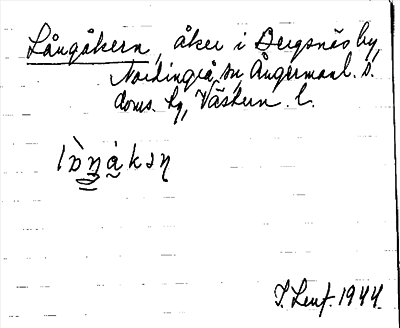 Långåkern, åker i Bergsnäs by,
Nordingrå sn, Ångermanl. s.
doms. hg, Västern. l.
lòŋákəɳ
J. Lenf. 1944.